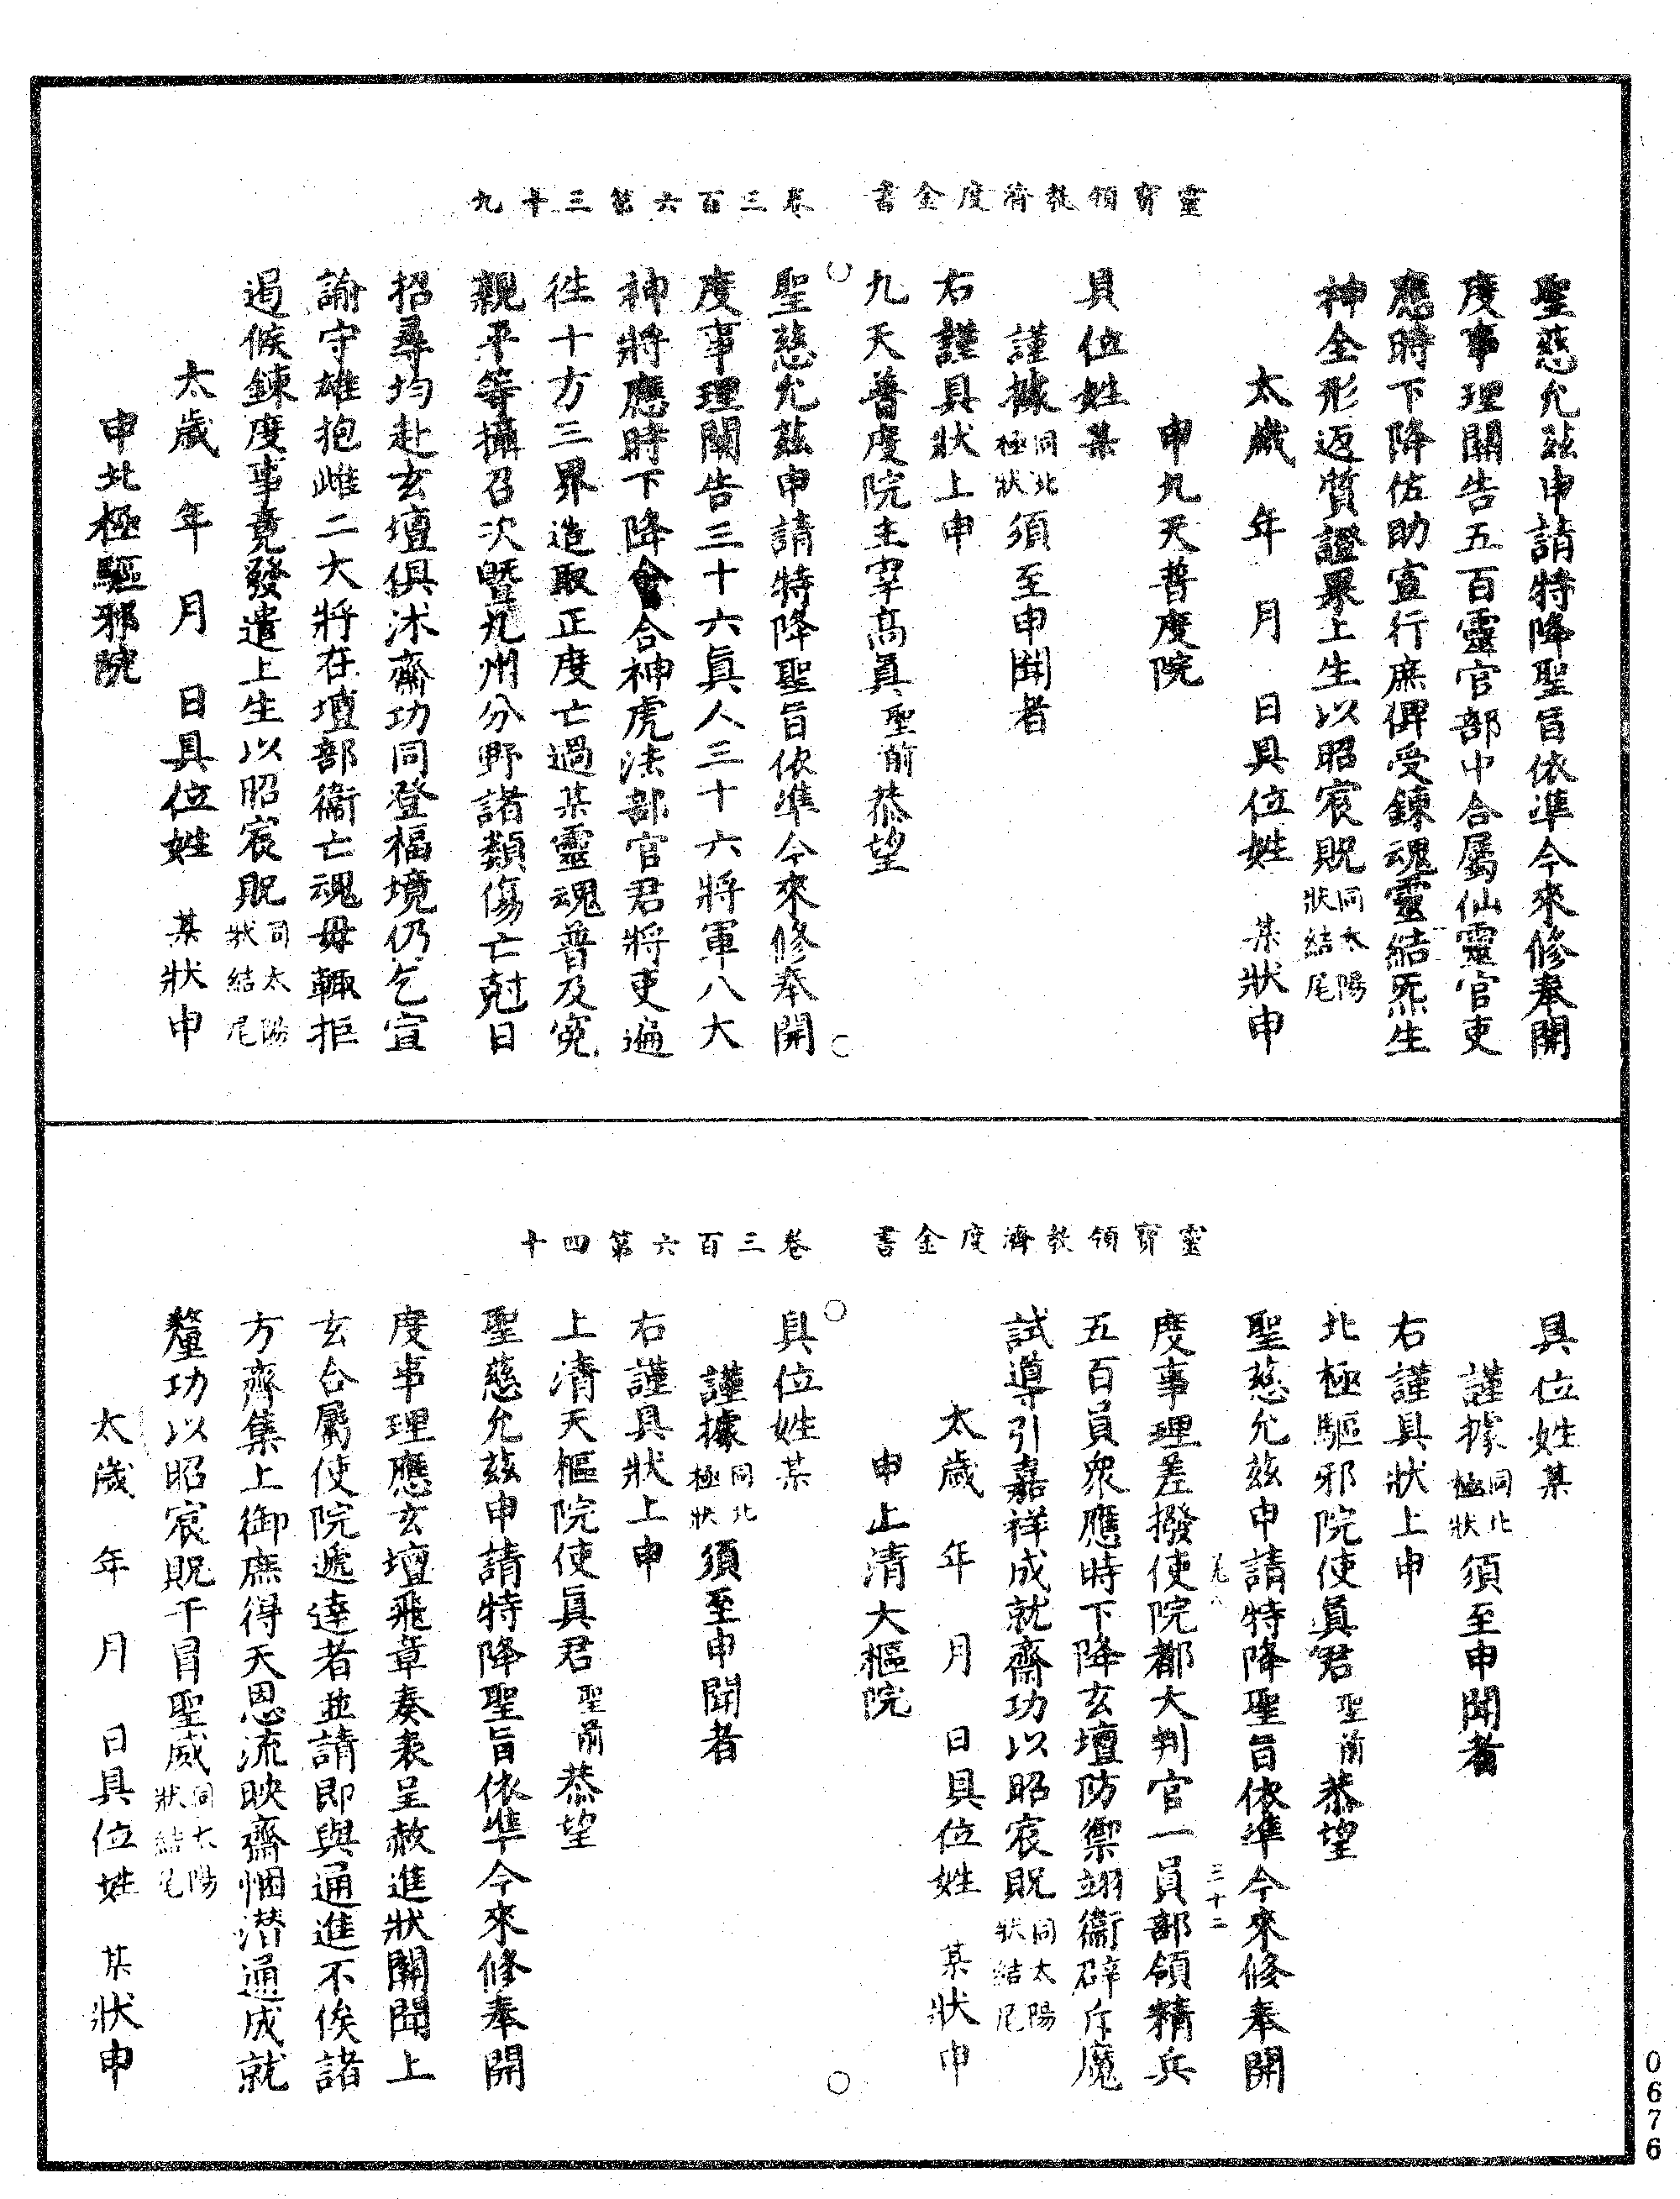 靈寶領教濟度金書 卷三百六第三十九
聖慈允茲申請特降聖旨依準今來修奉開
度事理關告五百靈官部中合屬仙靈官吏
應時下降佐助宣行庶俾受鍊魂靈結炁生
神全形返質證果上生以昭宸貺同太陽狀結尾
太歲 年 月 日具位姓 某狀申
申九天普度院
具位姓某
謹據同北極狀須至申聞者
右謹具狀上申
九天普度院主宰高眞聖前恭望
聖慈允茲申請特降聖旨依準今來修奉開
度事理關告三十六眞人三十六將軍八大
神將應時下降會合神虎法部官君將吏遍
徃十方三界造取正度亡過某靈魂普及寃
親平等攝召次曁九州分野諸類傷亡尅日
招尋均赴玄壇俱沭齋功同登福境仍乞宣
諭守雄抱雌二大將在壇部衞亡魂毋輒拒
遏候鍊度事竟發遣上生以昭宸貺同太陽狀結尾
太歲 年 月 日具位姓 某狀申
申北極驅邪院
靈寶領教濟度金書 卷三百六第四十
具位姓某
謹據同北極狀須至申聞者
右謹具狀上申
北極驅邪院使眞君聖前恭望
聖慈允茲申請特降聖旨依準今來修奉開
三十二
度事理差撥使院都大判官一員部領精兵
五百員衆應時下降玄壇防禦翊衞辟斥魔
試導引嘉祥成就齋功以昭宸貺同太陽狀結尾
太歲 年 月 日具位姓 某狀申
申上清大樞院
具位姓某
謹據同北極狀須至申聞者
右謹具狀上申
上清天樞院使眞君聖前恭望
聖慈允茲申請特降聖旨依準今來修奉開
度事理應玄壇飛章奏表呈赦進狀關聞上
玄合屬使院遞達者並請即與通進不俟諸
方齊集上御庶得天恩流映齋悃潛通成就
釐功以昭宸貺干冒聖威同太陽狀結尾
太歲 年 月 日具位姓 某狀申
0676